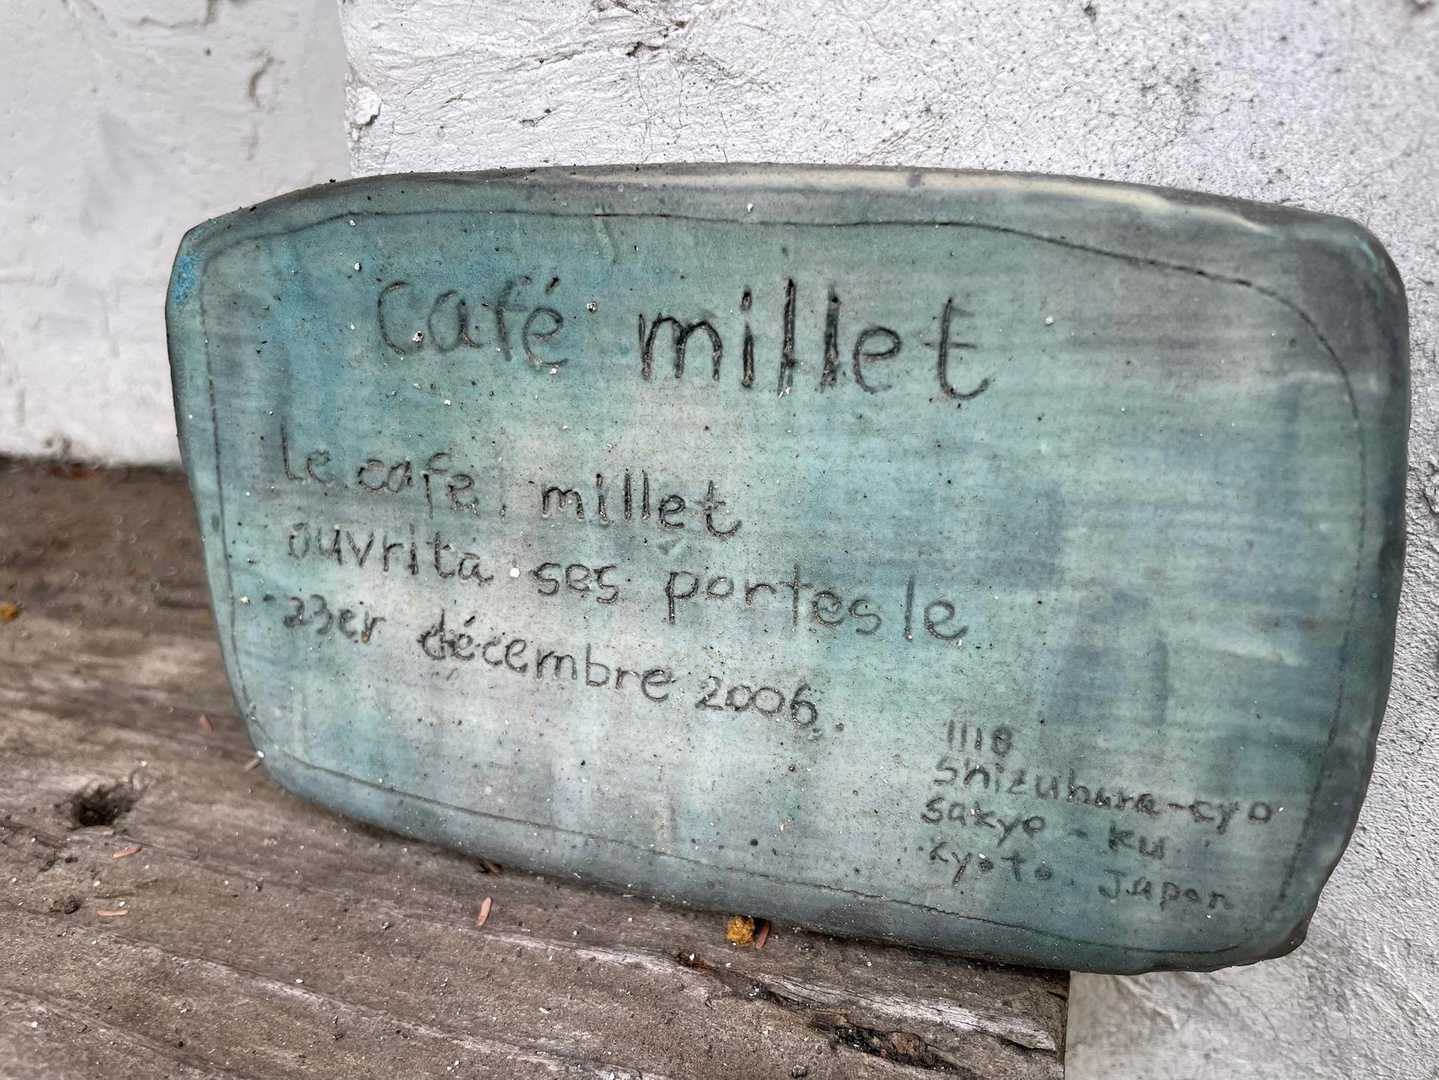 café millet
Le café millet
ouvrita ses portes le
23er décembre 2006.
1118
Shizuhara-cyo
Sakyo-ku
Kyoto Japan